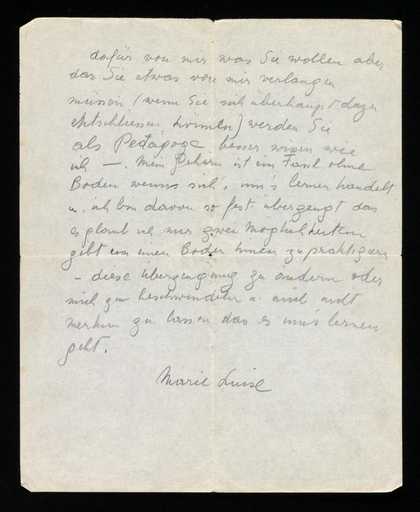 dafür von mir was Sie wollen aber
das Sie etwas von mir verlangen
müssen (wenn Sie sich überhaupt dazu
entschliessen könnten) werden Sie
als Pedagoge besser wissen wie
ich —. Mein Gehirn ist ein Fass ohne
Boden wenns sich um's lernen handelt
u. ich bin davon so fest überzeugt das
es glaub ich nur zwei Möglichkeiten
gibt um einen Boden hinein zu praktizieren
– diese Überzeugung zu ändern oder
mich zu beschwindeln u. mich nicht
merken zu lassen das es um's lernen
geht.
Marie Luise